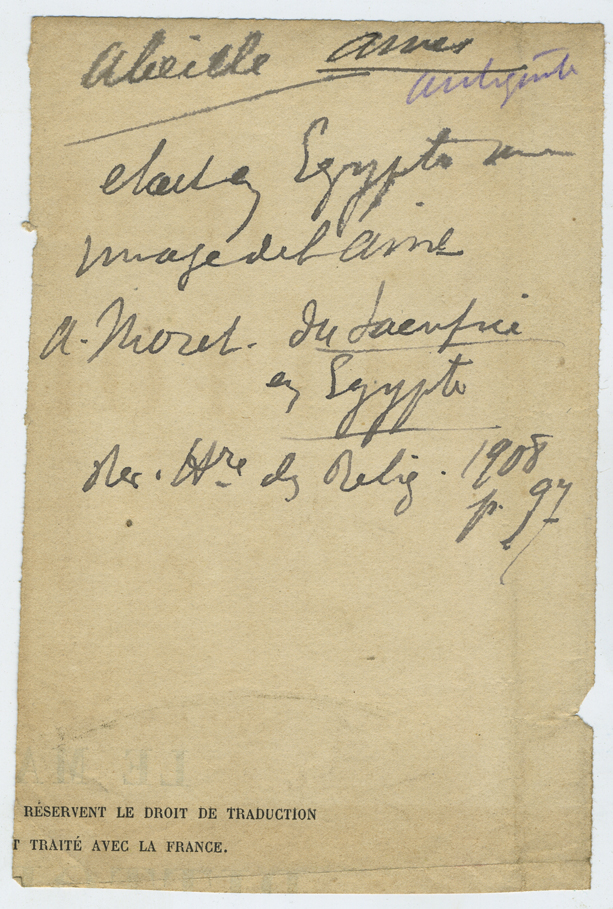 Abeille âmes
antiquité
était en Egypte une
image de l'âme
A. Moret. Du Sacrifice
en Egypte
Rev. Hre des Relig. 1908
p. 97
RÉSERVENT LE DROIT DE TRADUCTION
T TRAITÉ AVEC LA FRANCE.